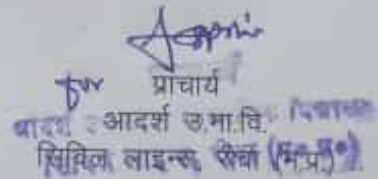 for प्राचार्य
आदर्श उ.मा.वि.
सिविल लाइन्स, रीवा (म.प्र.)